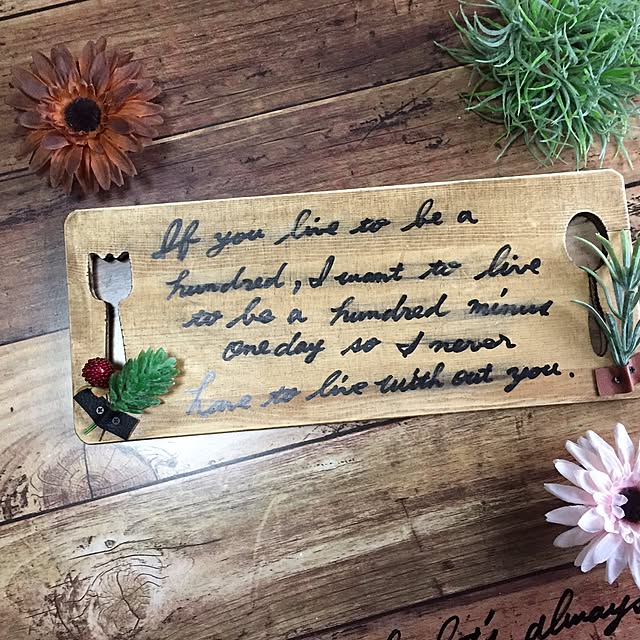 If you live to be a
hundred, I want to live
to be a hundred minus
one day so I never
have to live with out you.
always